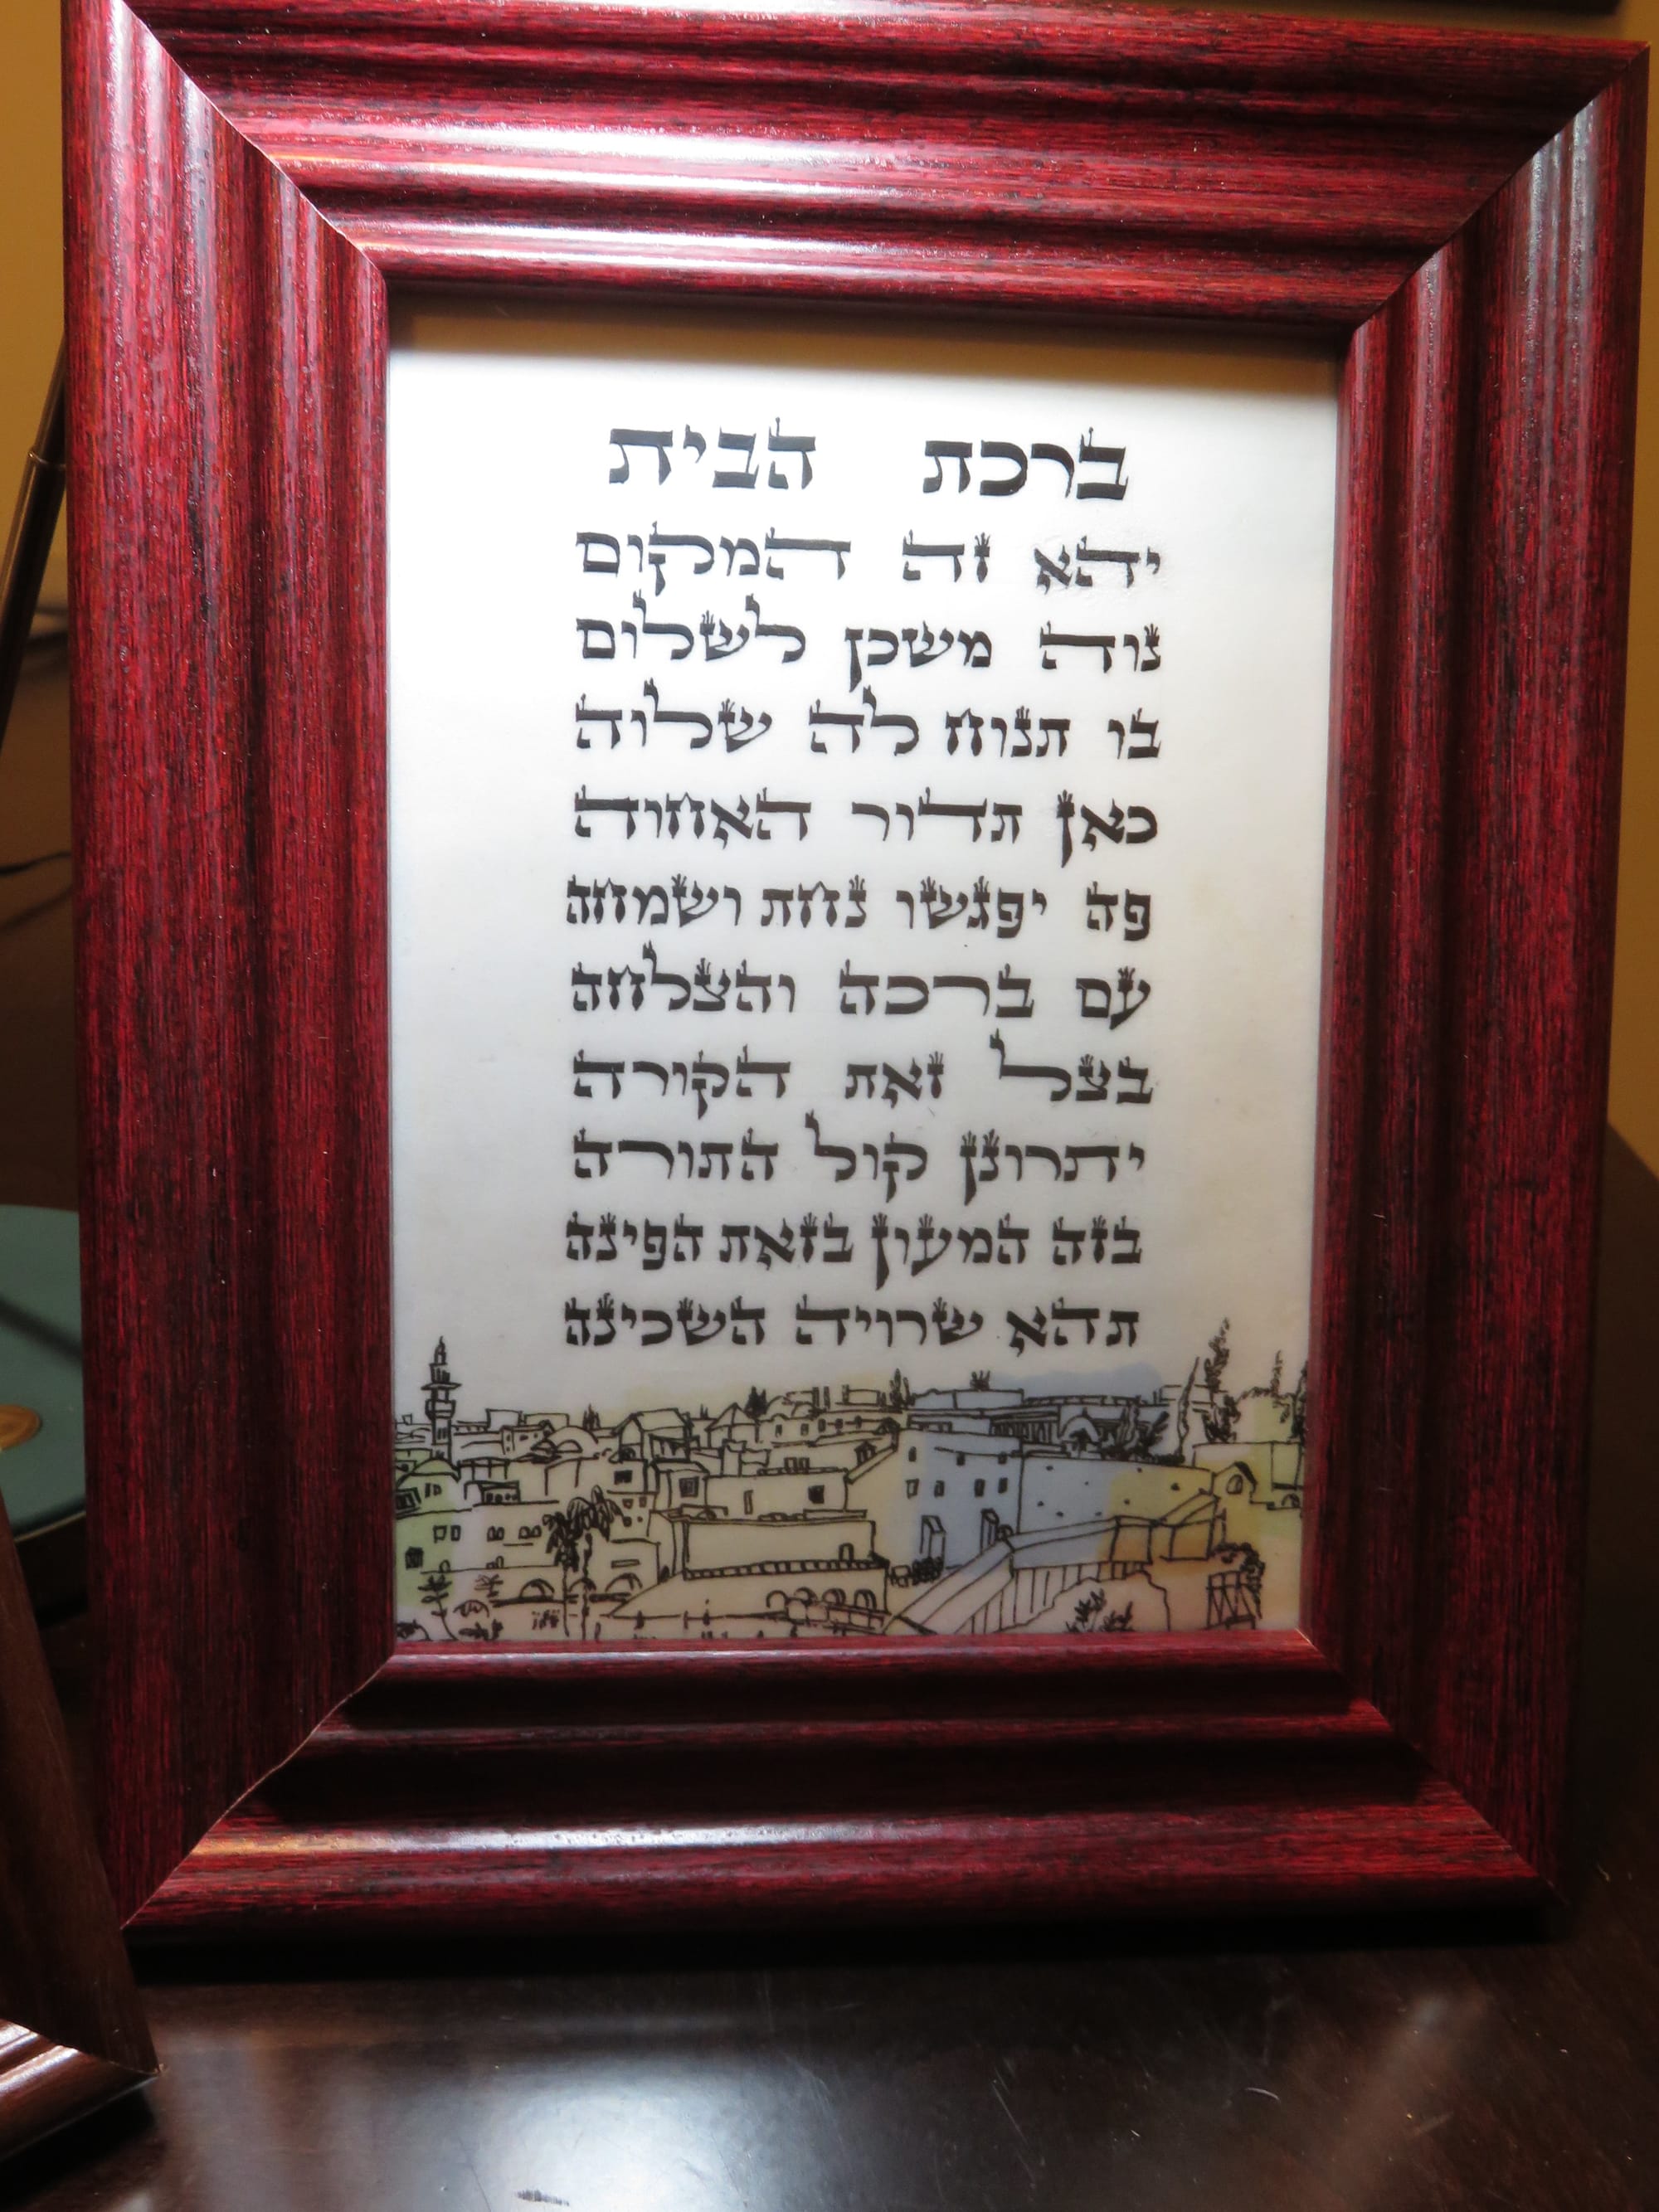 ברכת הבית
יהא זה המקום
נוה משכן לשלום
בו תנוח לה שלוה
כאן תדור האחוה
פה יפגשו נחת ושמחה
עם ברכה והצלחה
בצל זאת הקורה
יתרונן קול התורה
בזה המעון בזאת הפינה
תהא שרויה השכינה